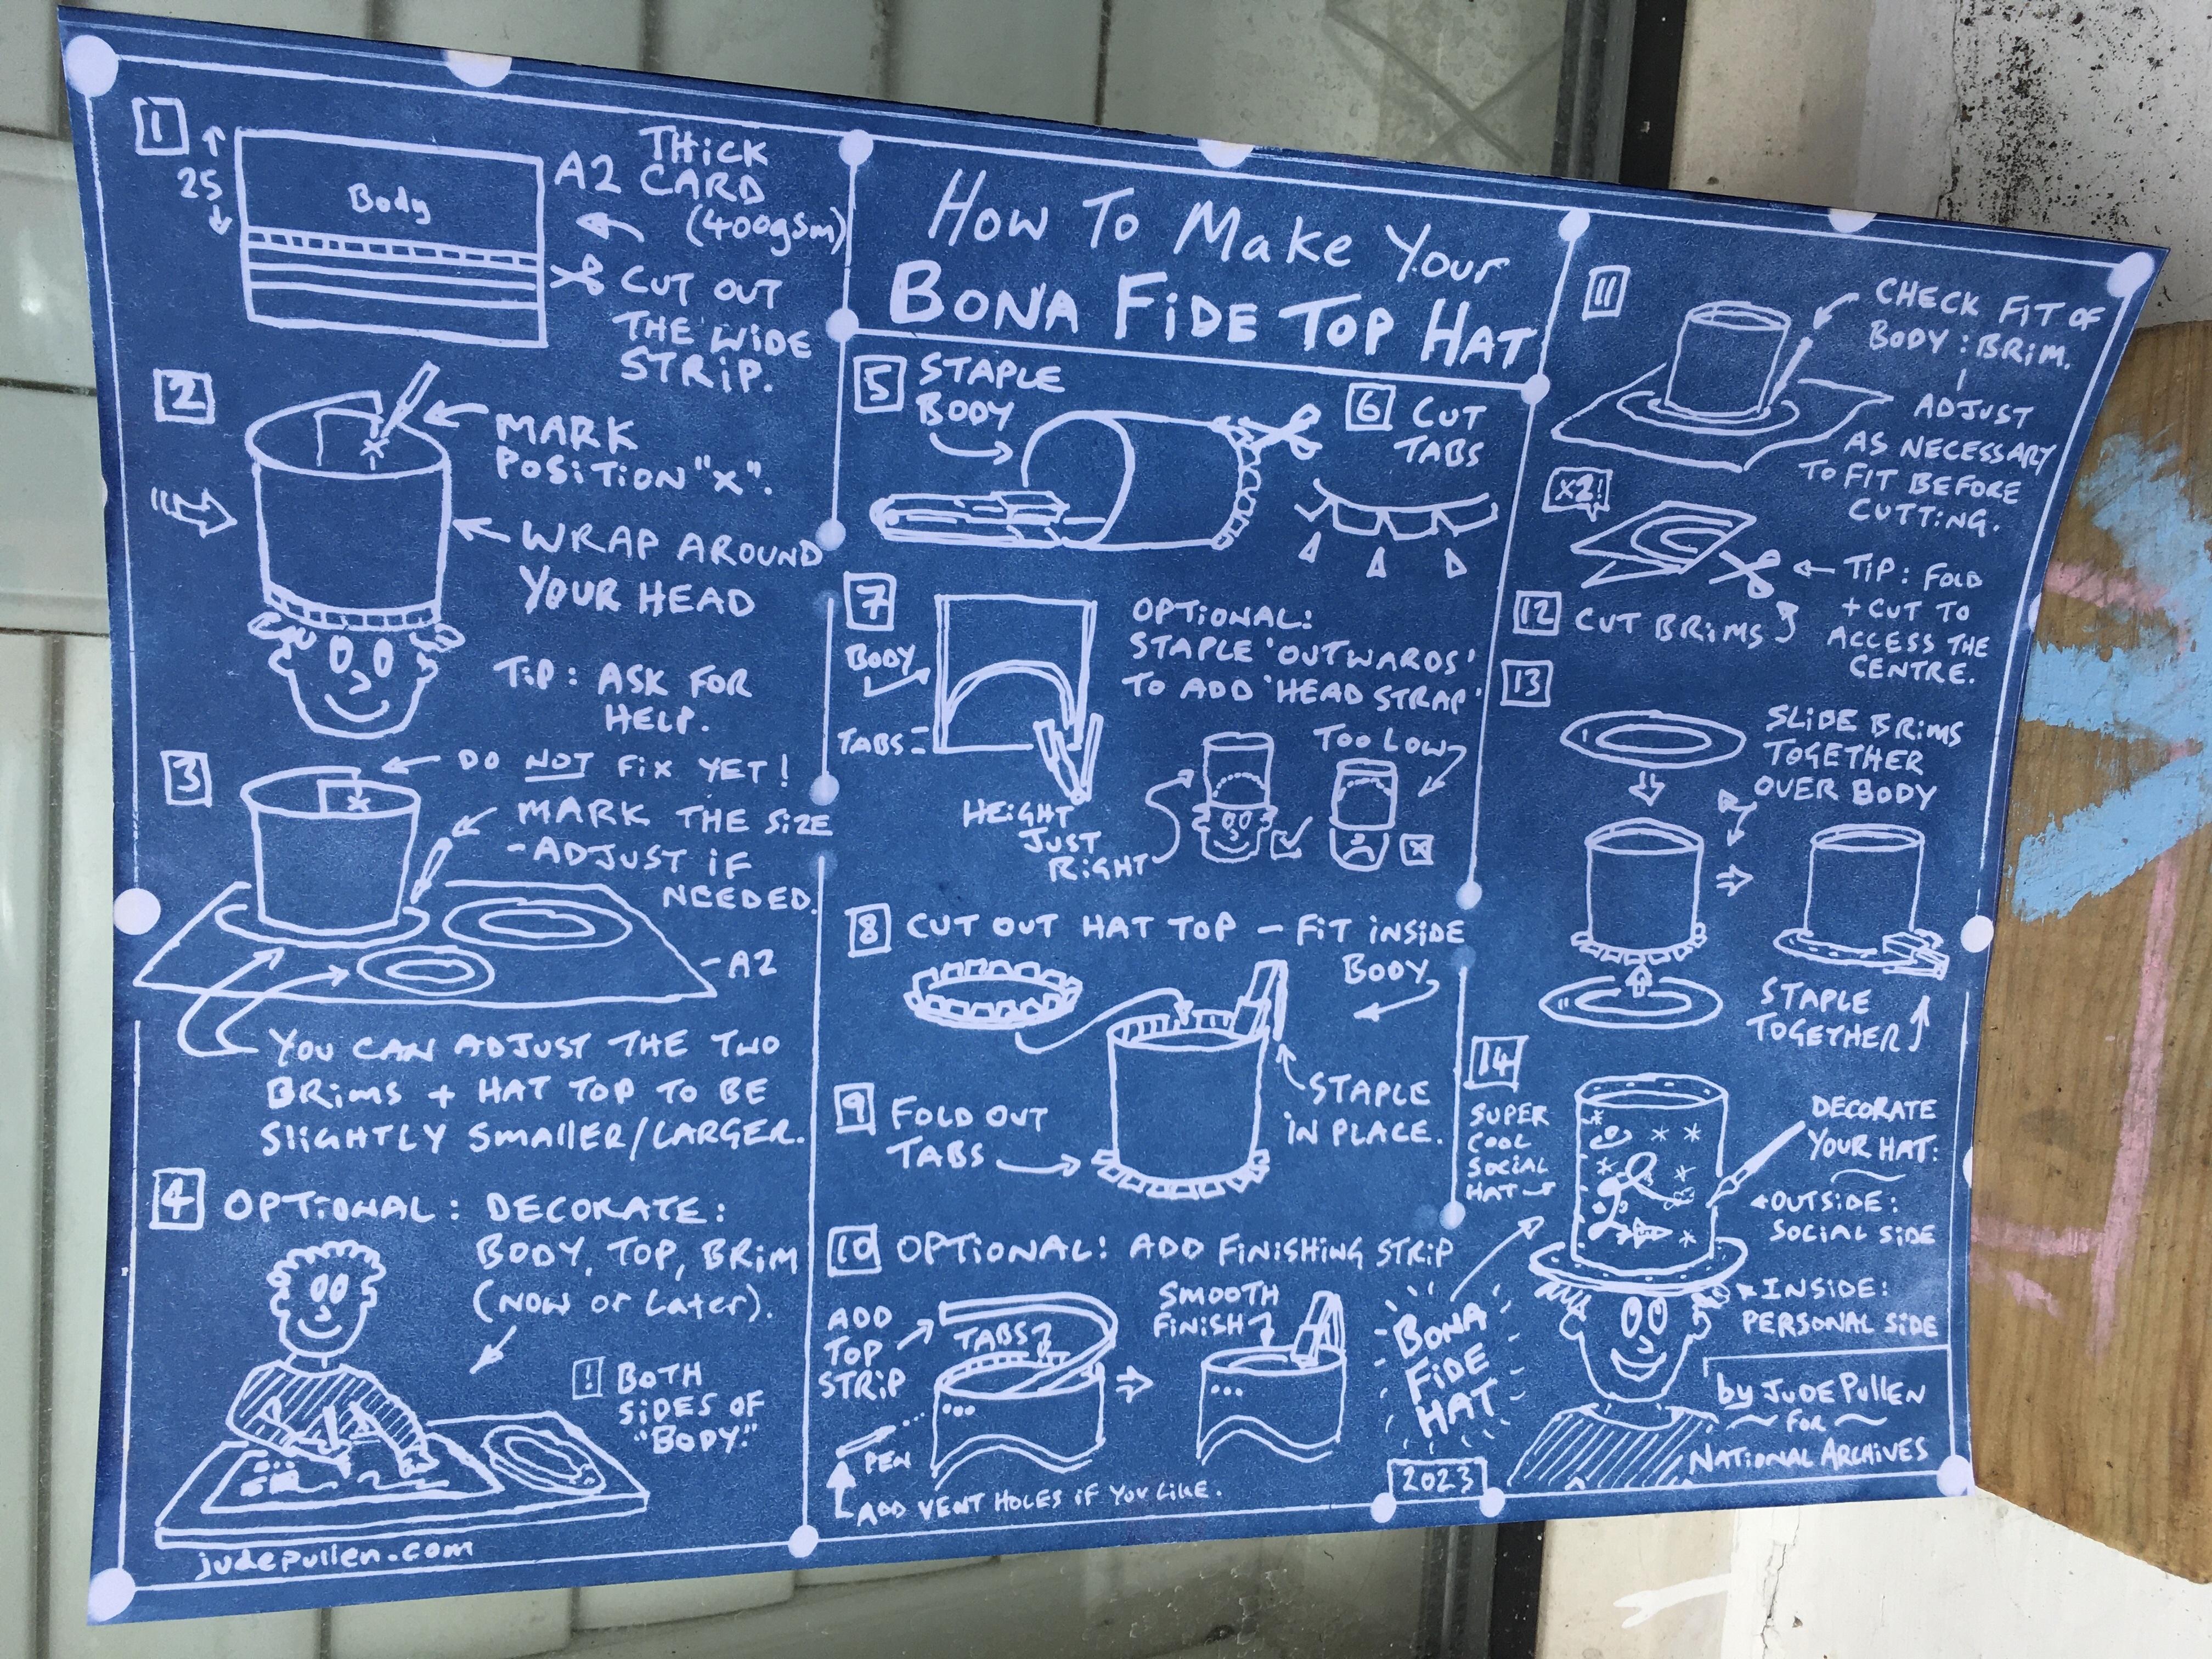 How To Make Your
BONA FIDE TOP HAT
1
25
Body
A2 THICK
CARD
(400gsm)
CUT OUT
THE WIDE
STRIP.
2
MARK
POSITION "X".
X
WRAP AROUND
YOUR HEAD
TIP: ASK FOR
HELP.
3
DO NOT FIX YET!
X
MARK THE SIZE
- ADJUST IF
NEEDED.
A2
YOU CAN ADJUST THE TWO
BRIMS + HAT TOP TO BE
SLIGHTLY SMALLER/LARGER.
4
OPTIONAL: DECORATE:
BODY, TOP, BRIM
(NOW or Later).
! BOTH
SIDES OF
"BODY."
judepullen.com
5
STAPLE
BODY
6
CUT
TABS
7
BODY
TABS
OPTIONAL:
STAPLE 'OUTWARDS'
TO ADD 'HEAD STRAP'
HEIGHT
JUST
RIGHT
TOO LOW
8
CUT OUT HAT TOP - FIT INSIDE
BODY
STAPLE
IN PLACE.
9
FOLD OUT
TABS
10
OPTIONAL: ADD FINISHING STRIP
ADD
TOP
STRIP
TABS
SMOOTH
FINISH
PEN
ADD VENT HOLES IF YOU LIKE.
11
CHECK FIT OF
BODY: BRIM.
ADJUST
AS NECESSARY
TO FIT BEFORE
CUTTING.
X2!
12
CUT BRIMS
TIP: FOLD
+ CUT TO
ACCESS THE
CENTRE.
13
SLIDE BRIMS
TOGETHER
OVER BODY
STAPLE
TOGETHER
14
SUPER
COOL
SOCIAL
HAT
DECORATE
YOUR HAT:
OUTSIDE:
SOCIAL SIDE
INSIDE:
PERSONAL SIDE
BONA
FIDE
HAT
2023
by JUDE PULLEN
FOR
NATIONAL ARCHIVES